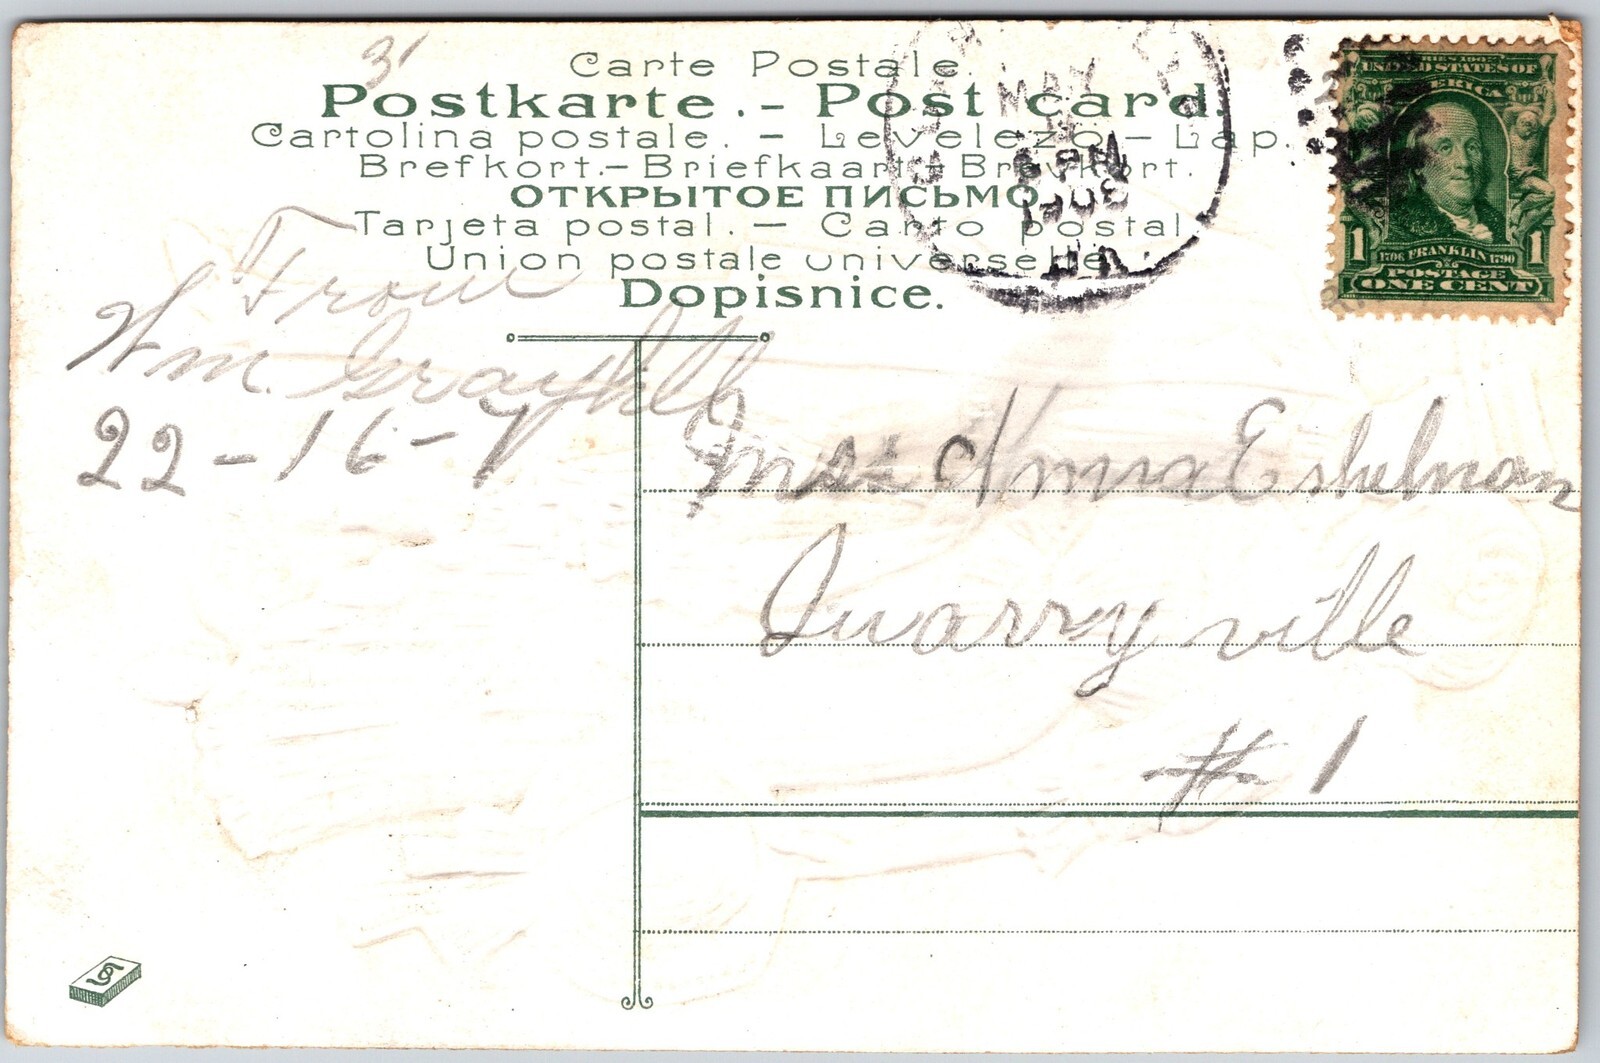 3'
Carte Postale.
Postkarte. - Post card.
Cartolina postale. - Levelezö - Lap.
Brefkort. - Briefkaart - Brevkort.
ОТКРЫТОЕ ПИСЬМО.
Tarjeta postal. - Carto postal
Union postale universelle.
Dopisnice.
MAY
6 PM
1908
PA.
SERIES 1902
UNITED STATES OF AMERICA
1 1706 FRANKLIN 1790 1
POSTAGE
ONE CENT
From
Wm. Graybill
22-16-7
Mrs Anna Eshelman
Quarryville
# 1